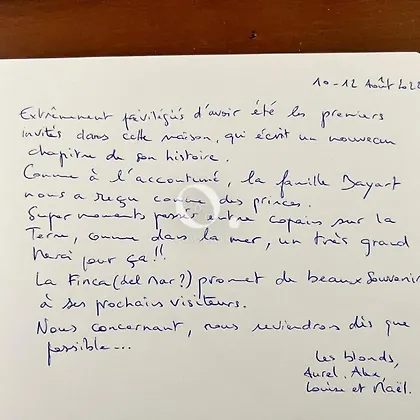 10-12 Août 202
Extrêmement privilégiés d'avoir été les premiers
invités dans cette maison, qui écrit un nouveau
chapitre de son histoire.
Comme à l'accoutumé, la famille Bayart
nous a reçu comme des princes.
Super moments passés entre copains sur la
Terre, comme dans la mer, un très grand
Merci pour ça!!
La Finca (del Mar?) promet de beaux souvenirs
à ses prochains visiteurs.
Nous concernant, nous reviendrons dès que
possible...
Les blonds,
Aurel, Alex,
Louise et Naël.